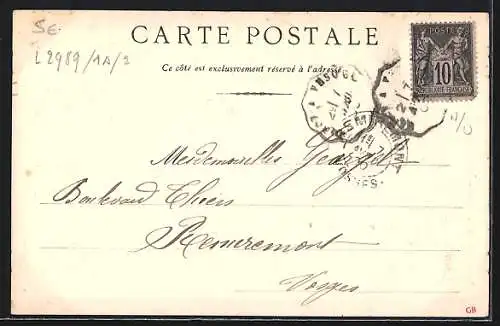 5€
L2989/1A/1
CARTE POSTALE
Ce côté est exclusivement réservé à l'adresse
POSTES
10
REPUBLIQUE FRANÇAISE
Mesdemoiselles Georgel
Boulevard Thiers
Remiremont
Vosges
GB